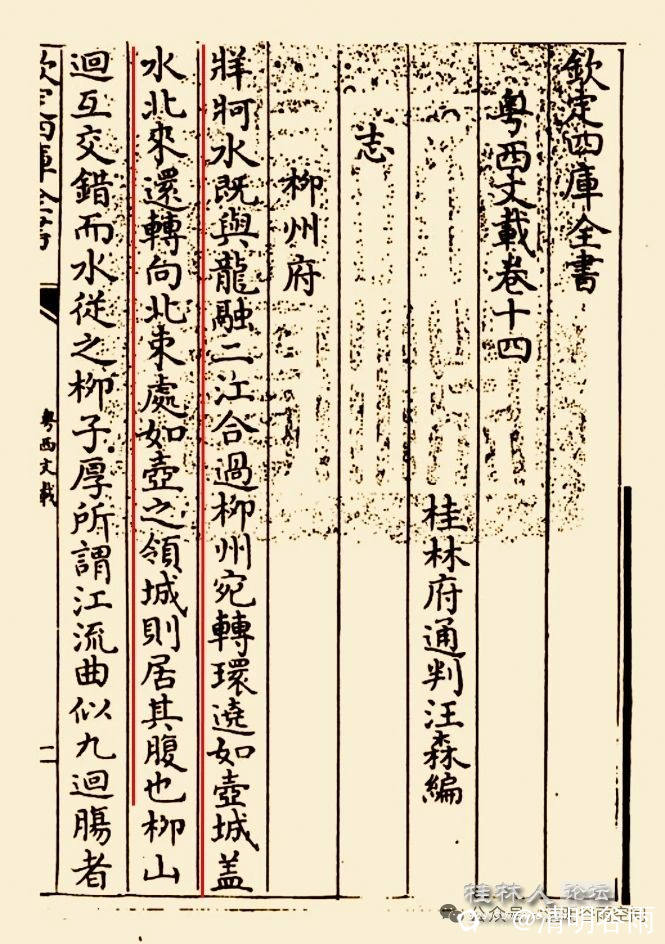 欽定四庫全書
粵西文載卷十四
桂林府通判汪森編
志
柳州府
牂牁水既與龍融二江合過柳州宛轉環遶如壺城盖
水北來還轉向北束處如壺之領城則居其腹也柳山
迴互交錯而水従之柳子厚所謂江流曲似九迴膓者
欽定四庫全書
粵西文載
二
桂林人论坛
公众号
@清明谷雨